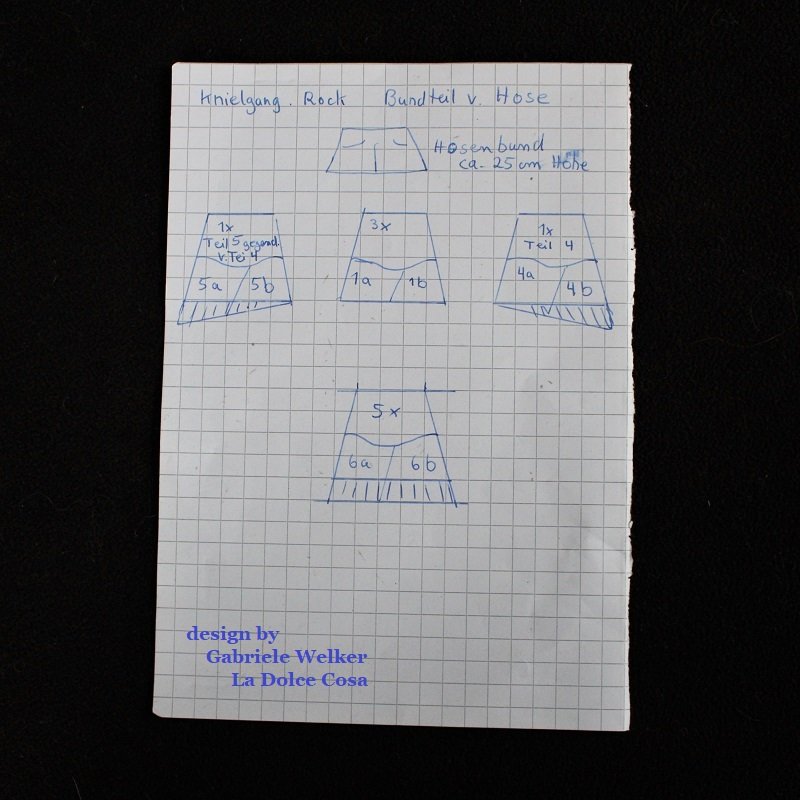 Knielgang. Rock Bundteil v. Hose
Hosenbund
ca. 25 cm Höhe
1x
Teil 5 gegend.
v. Teil 4
5a 5b
3x
1a 1b
1x
Teil 4
4a 4b
5x
6a 6b
design by
Gabriele Welker
La Dolce Cosa